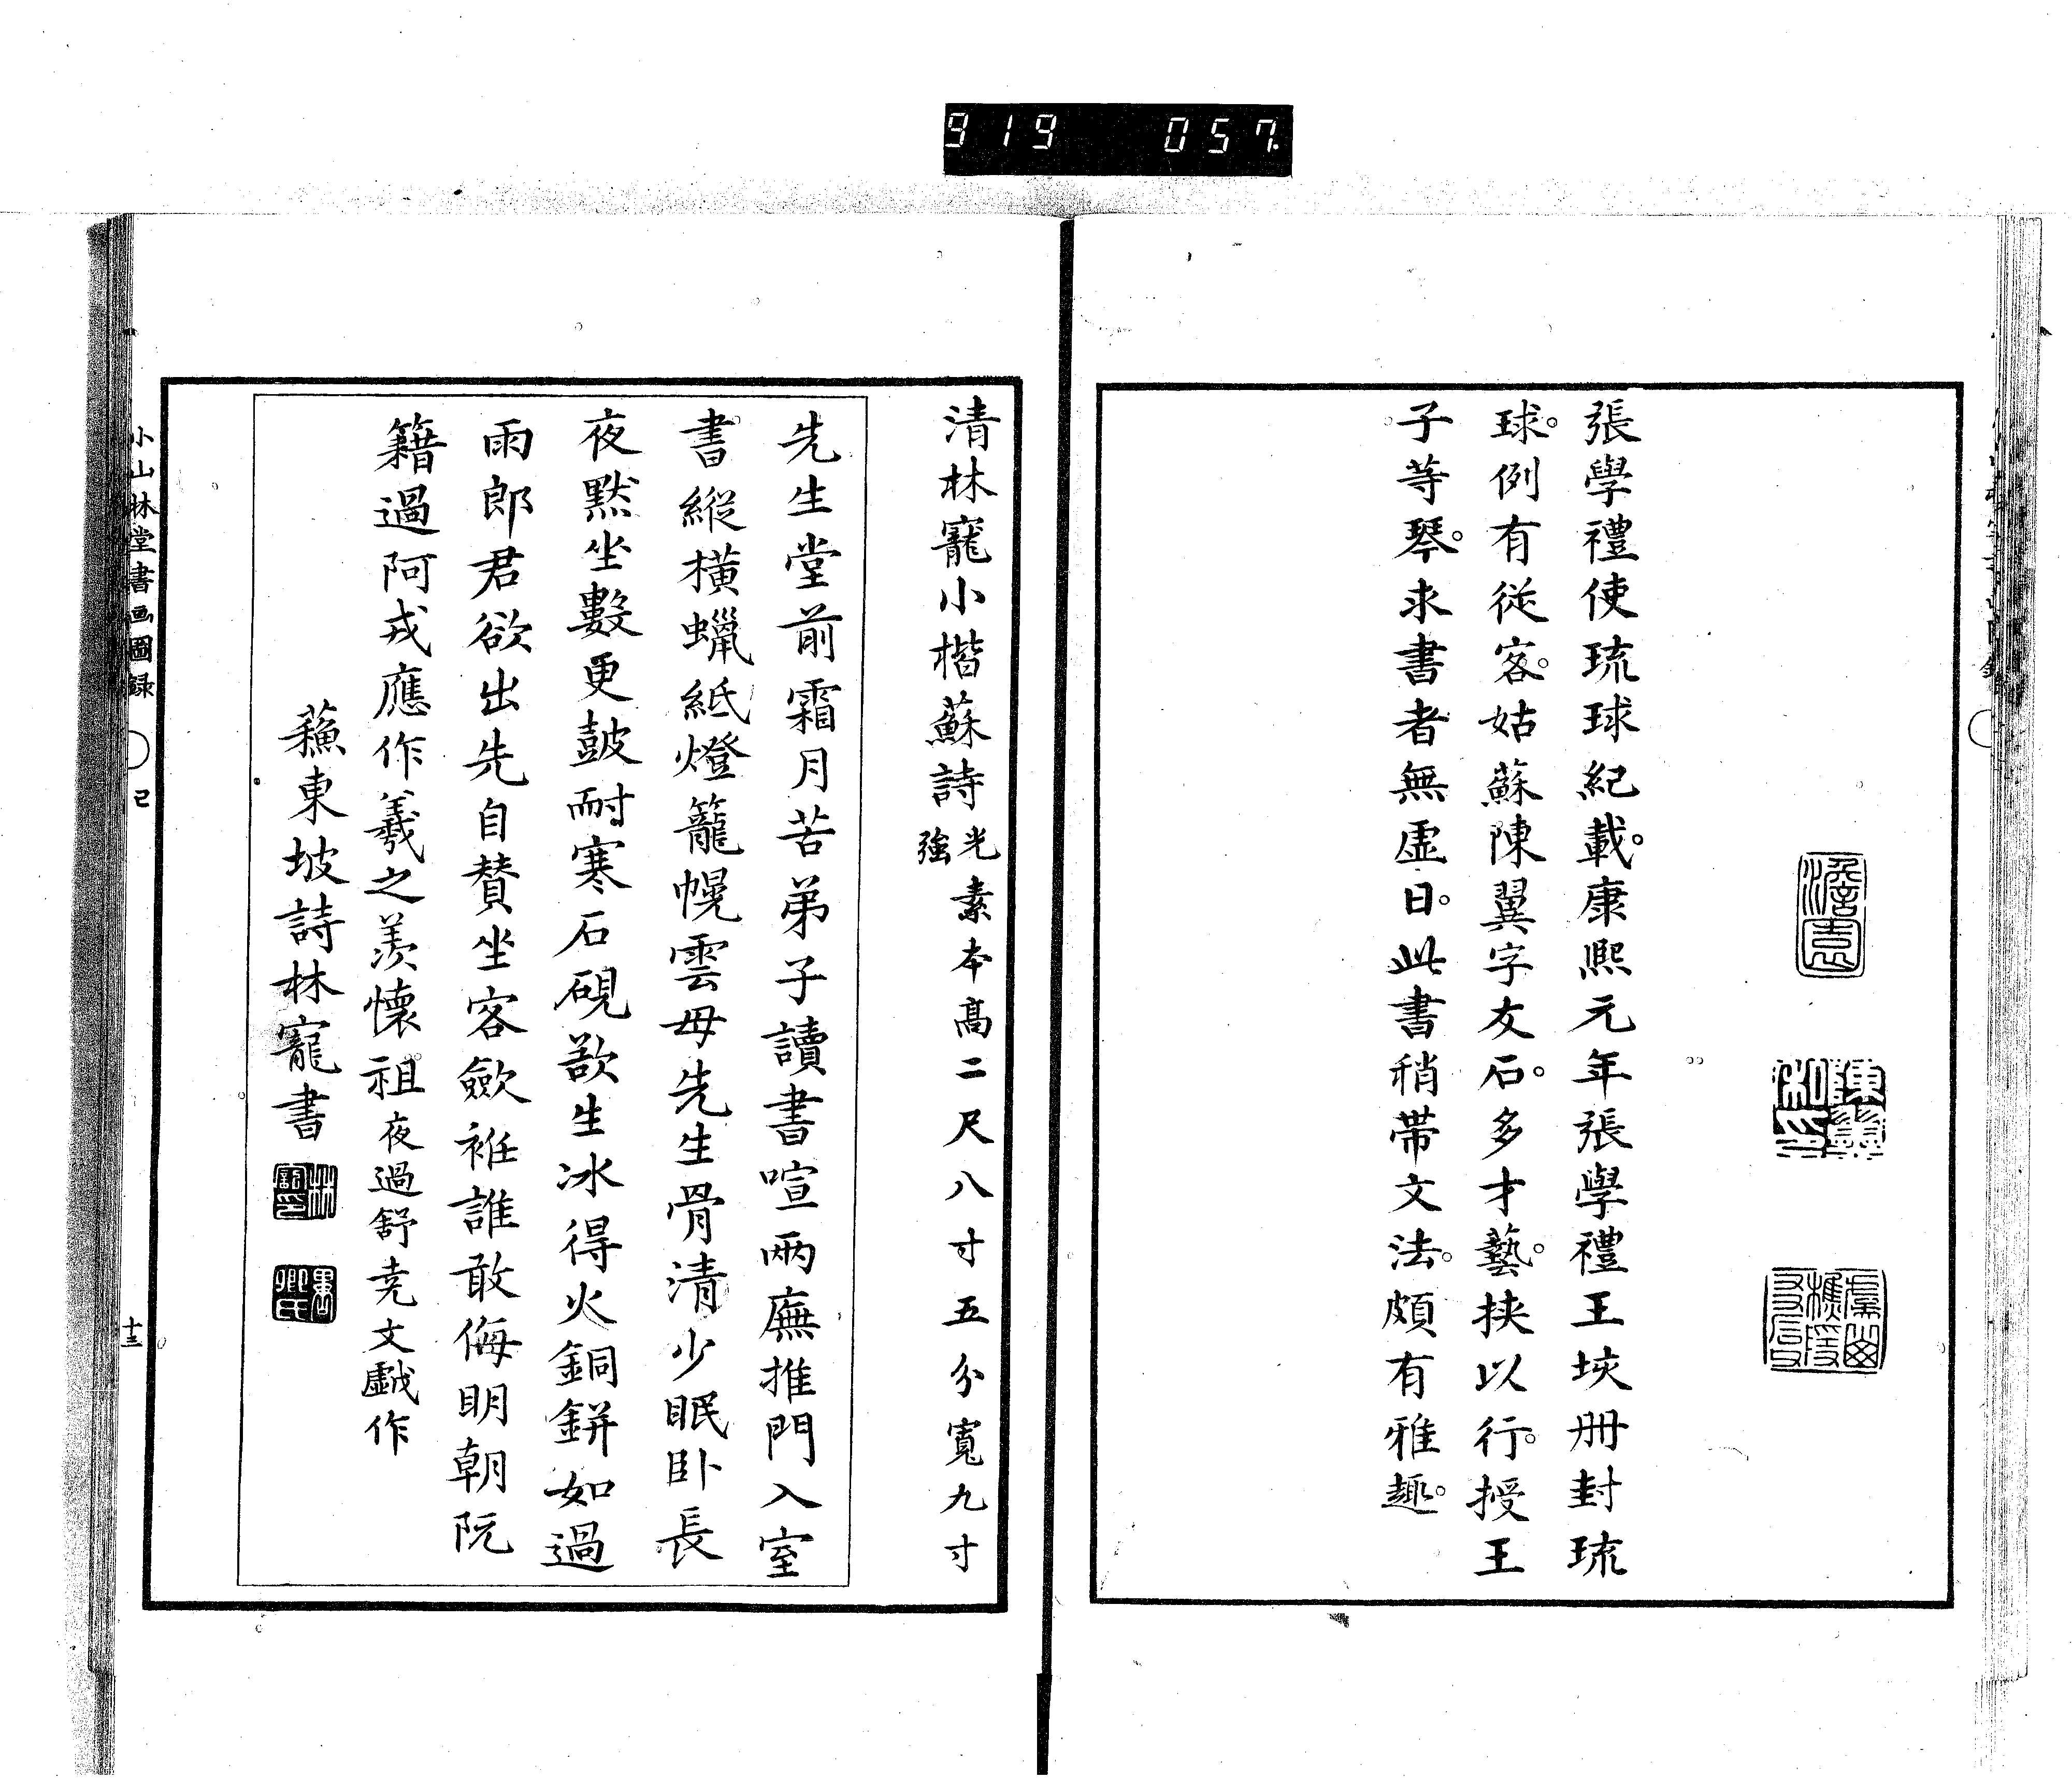 919 057.
張學禮使琉球紀載。康熙元年張學禮王垓册封琉
球。例有從客。姑蘇陳翼字友石。多才藝。挾以行。授王
子等琴。求書者無虛日。此書稍帶文法。頗有雅趣。
清林寵小楷蘇詩 光素本高二尺八寸五分寬九寸
強
先生堂前霜月苦弟子讀書喧兩廡推門入室
書縱橫蠟紙燈籠幌雲母先生骨清少眠卧長
夜默坐數更鼓耐寒石硯欲生冰得火銅鉼如過
雨郎君欲出先自賛坐客歛袵誰敢侮明朝阮
籍過阿戎應作羲之羨懷祖夜過舒堯文戱作
蘓東坡詩林寵書
小山林堂書画圖録 己 十三